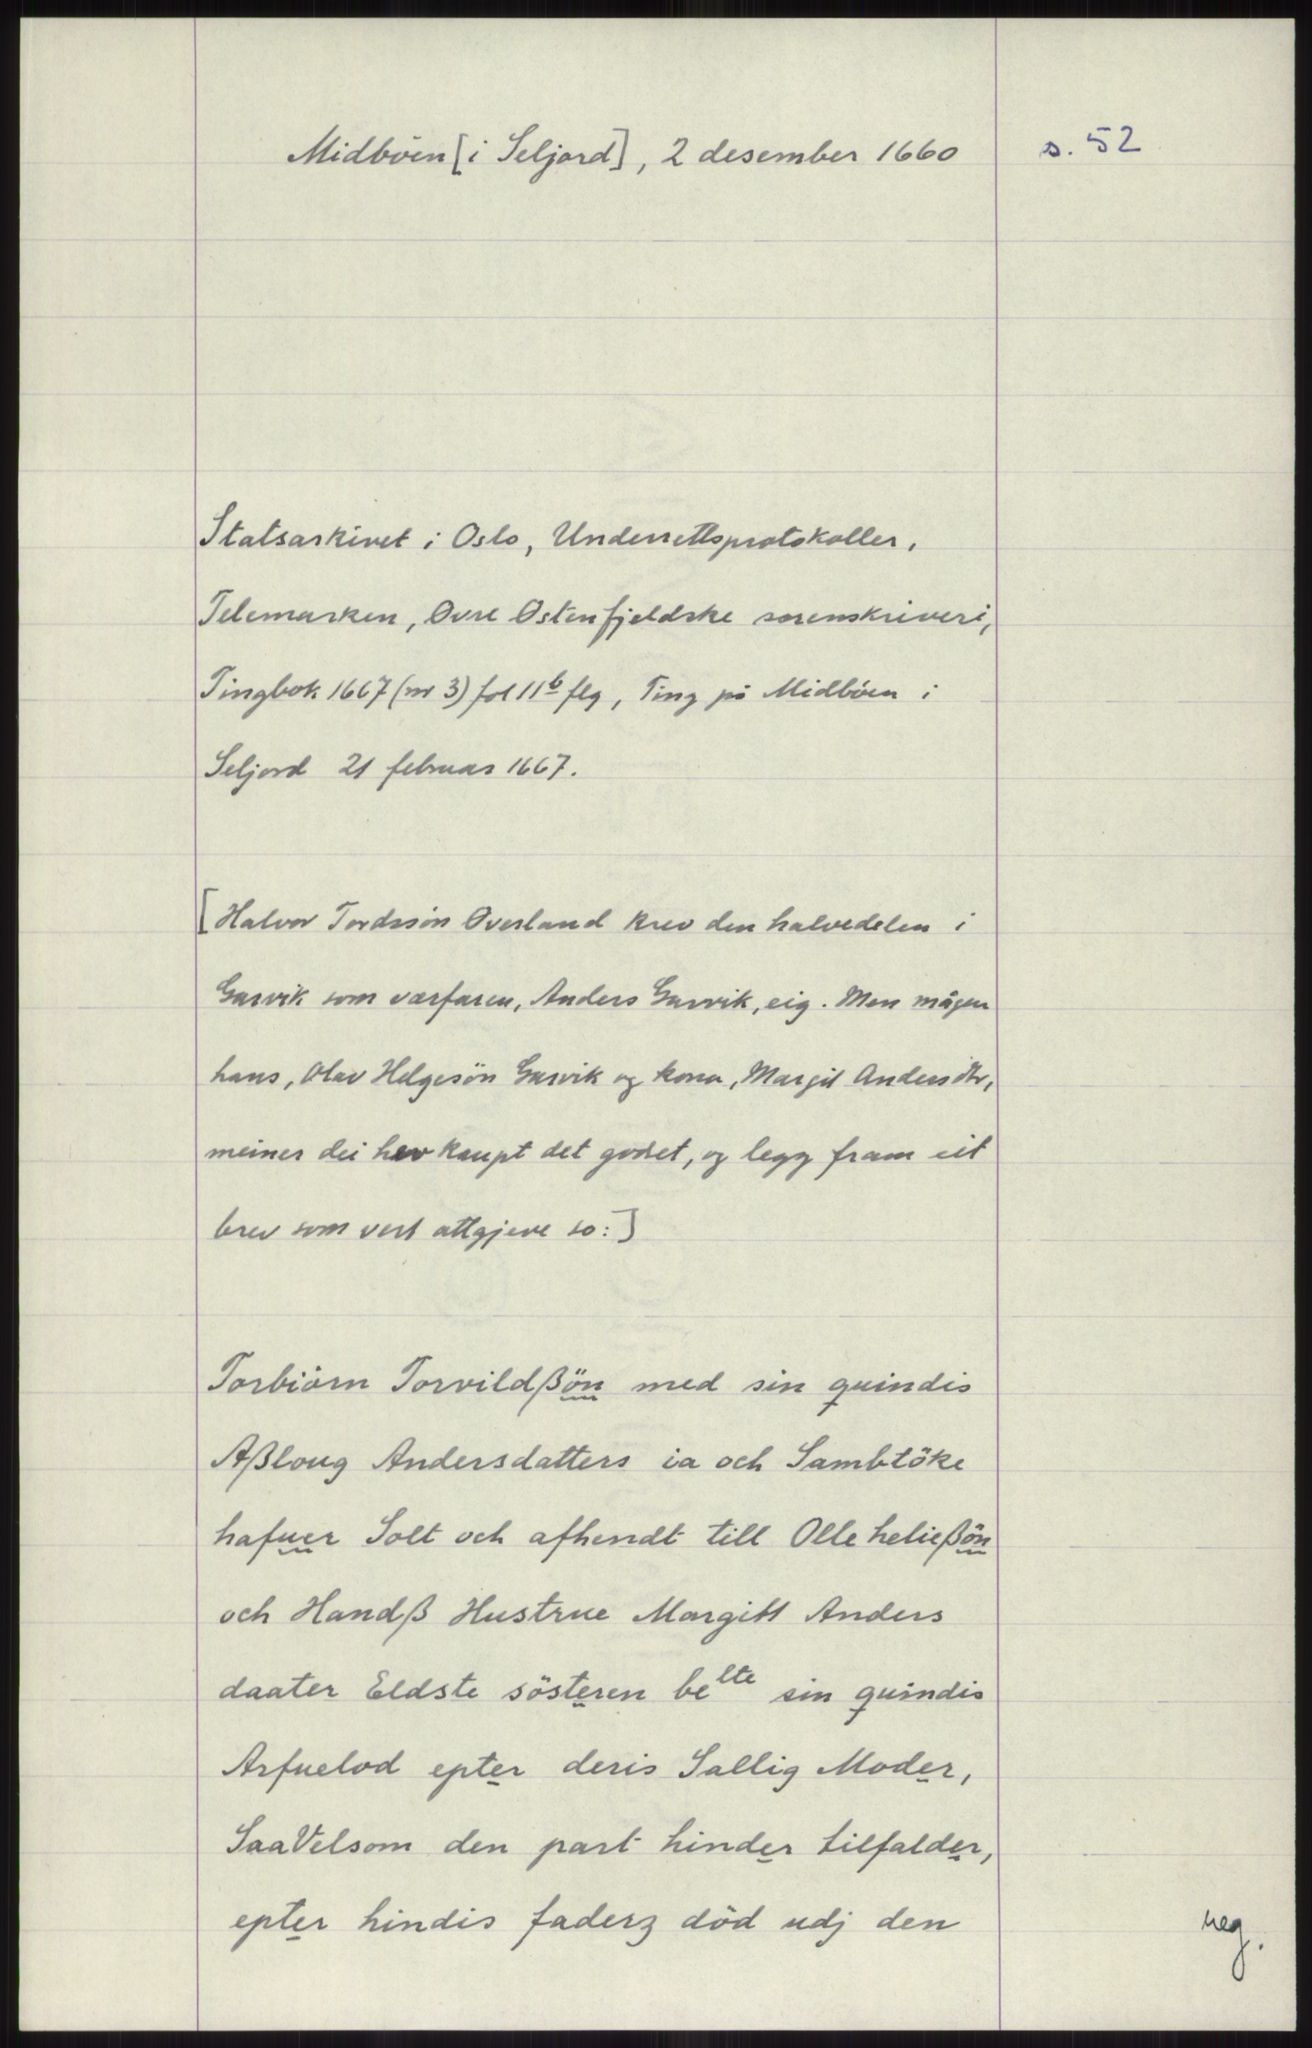 Midböen [i Seljord], 2 desember 1660
s. 52
Statsarkivet i Oslo, Underrettsprotokoller,
Telemarken, Øvre Østenfjeldske sorenskriveri,
Tingbok 1667 (nr 3) fol 11b flg, Ting på Midböen i
Seljord 21 februar 1667.
[Halvor Tordssön Överland krev den halvedelen i
Garvik som værfaren, Anders Garvik, eig. Men mågen
hans, Olav Helgesön Garvik og kona, Margit Andersdtr,
meiner dei hev kaupt det godset, og legg fram eit
brev som vert attgjeve so:]
Torbiörn Torvildßön med sin quindis
Aßloug Andersdatters ia och Sambtöke
hafuer Solt och afhendt till Olle heließön
och Handß Hustrue Margitt Anders
daater Eldste sösteren belte sin quindis
Arfuelod epter deris Sallig Moder,
SaaVelsom den part hinder tilfalder,
epter hindis faderz död udj den
reg.